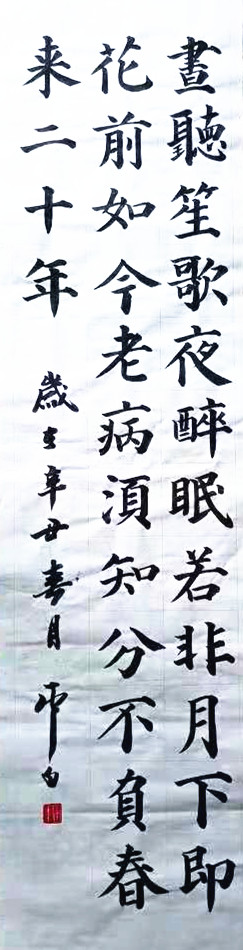 晝聽笙歌夜醉眠若非月下即
花前如今老病湏知分不負春
来二十年 歲在辛丑春月